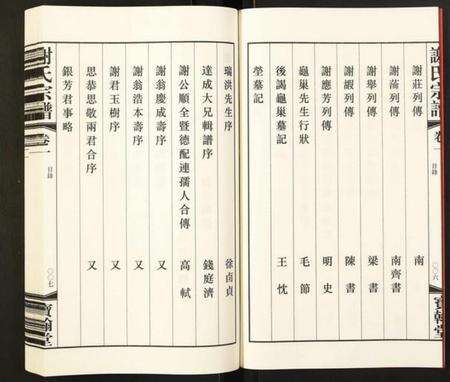 謝氏宗譜 卷一 目錄 〇〇六 寶翰堂
謝莊列傳 南
謝𤅢列傳 南齊書
謝舉列傳 梁書
謝嘏列傳 陳書
謝應芳列傳 明史
龜巢先生行狀 毛節
後謁龜巢墓記 王忱
塋墓記
瑞洪先生序 徐卣貞
達成大兄輯譜序 錢庭濟
謝公順全暨德配連孺人合傳 高軾
謝翁慶成壽序 又
謝翁浩本壽序 又
謝君玉樹序 又
思恭思敬兩君合序 又
銀芳君事略
謝氏宗譜 卷一 目錄 〇〇七 寶翰堂